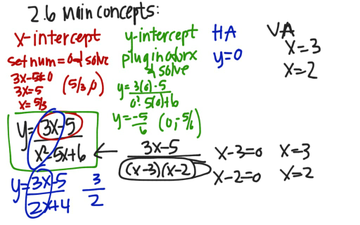 2.6 main concepts:
x-intercept
set num=0 and solve
3x-5=0
3x=5
x=5/3
(5/3,0)
y-intercept
plug in 0 for x
& solve
y=3(0)-5/0²-5(0)+6
y=-5/6 (0,-5/6)
HA
y=0
VA
x=3
x=2
y=3x-5/x²-5x+6
← 3x-5/(x-3)(x-2)
x-3=0 x=3
x-2=0 x=2
y=3x-5/2x+4 3/2